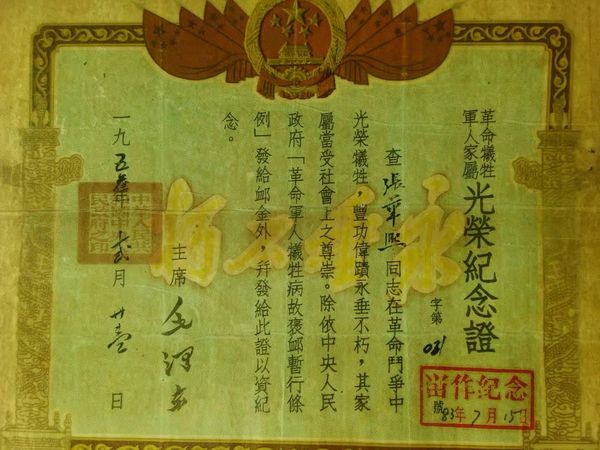 革命犧牲
軍人家屬
光榮紀念證
字第031號
畄作纪念
83年7月15日
查張華熙同志在革命鬥爭中
光榮犧牲,豐功偉蹟永垂不朽,其家
屬當受社會上之尊崇。除依中央人民
政府「革命軍人犧牲病故褒卹暫行條
例」發給卹金外,幷發給此證以資紀
念。
永垂不朽
主席 毛澤東
一九五年月廿壹日